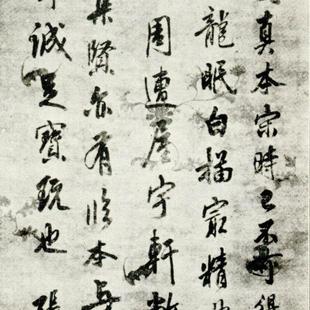 真本宋時已不可得
龍眠白描最精
周遭屋宇軒敞
集賢亦有臨本
誠足寶玩也 張